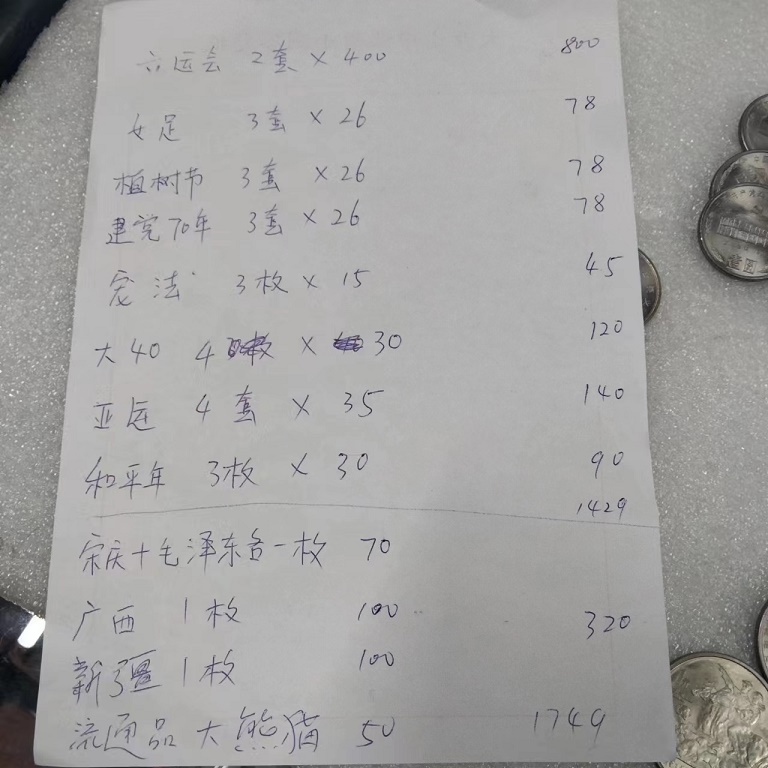 六运会 2套 × 400 800
女足 3套 × 26 78
植树节 3套 × 26 78
建党70年 3套 × 26 78
宪法 3枚 × 15 45
大40 4枚 × 30 120
亚运 4套 × 35 140
和平年 3枚 × 30 90
1429
宋庆十毛泽东各一枚 70
广西 1枚 100 320
新疆 1枚 100
流通品 大熊猫 50 1749